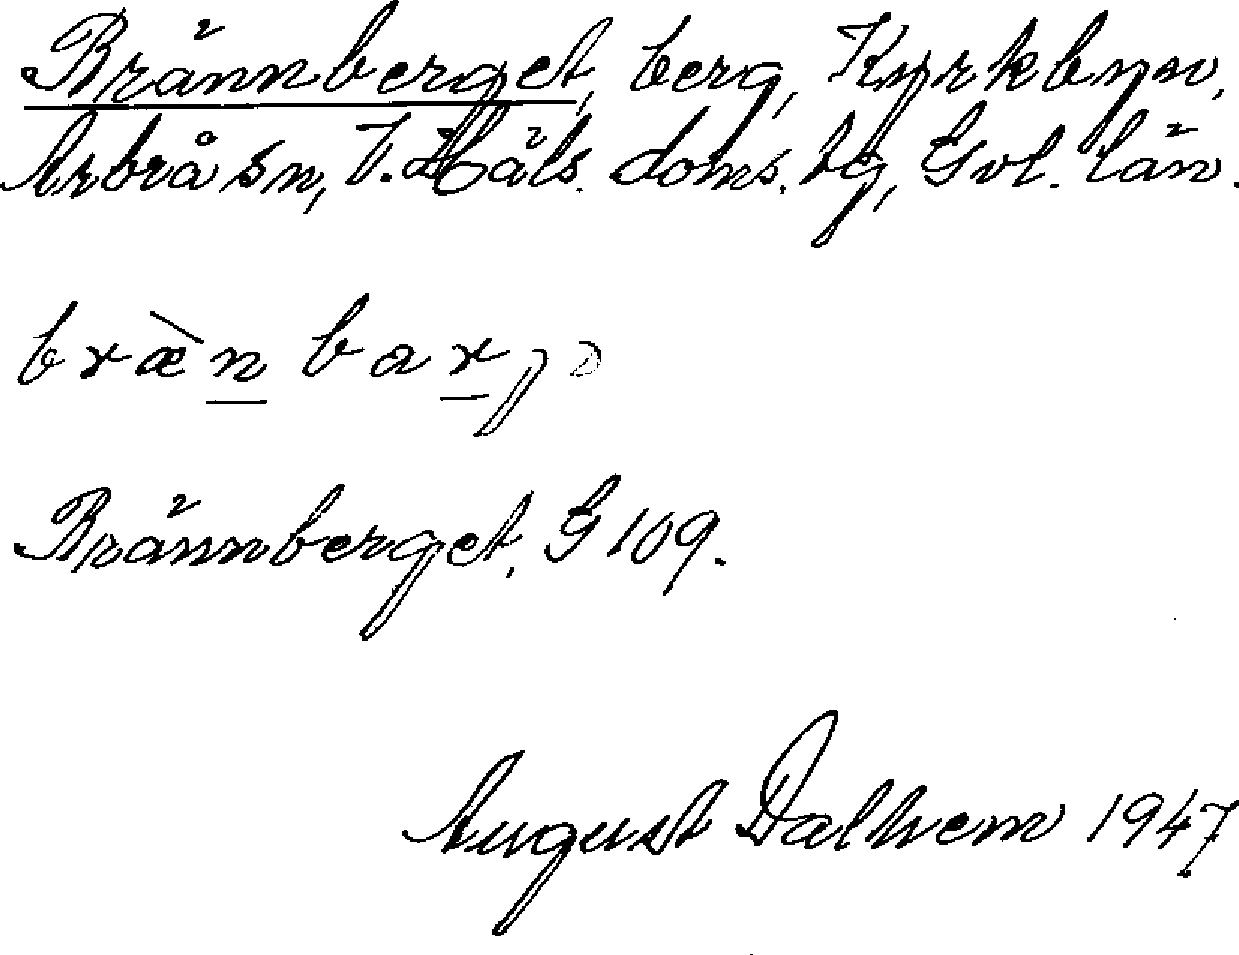 Brännberget, berg, Kyrkbyn,
Arbrå sn, V. Häls. doms. lg, Gvl. län.
Brännberget, G 109.
August Dalhem 1947